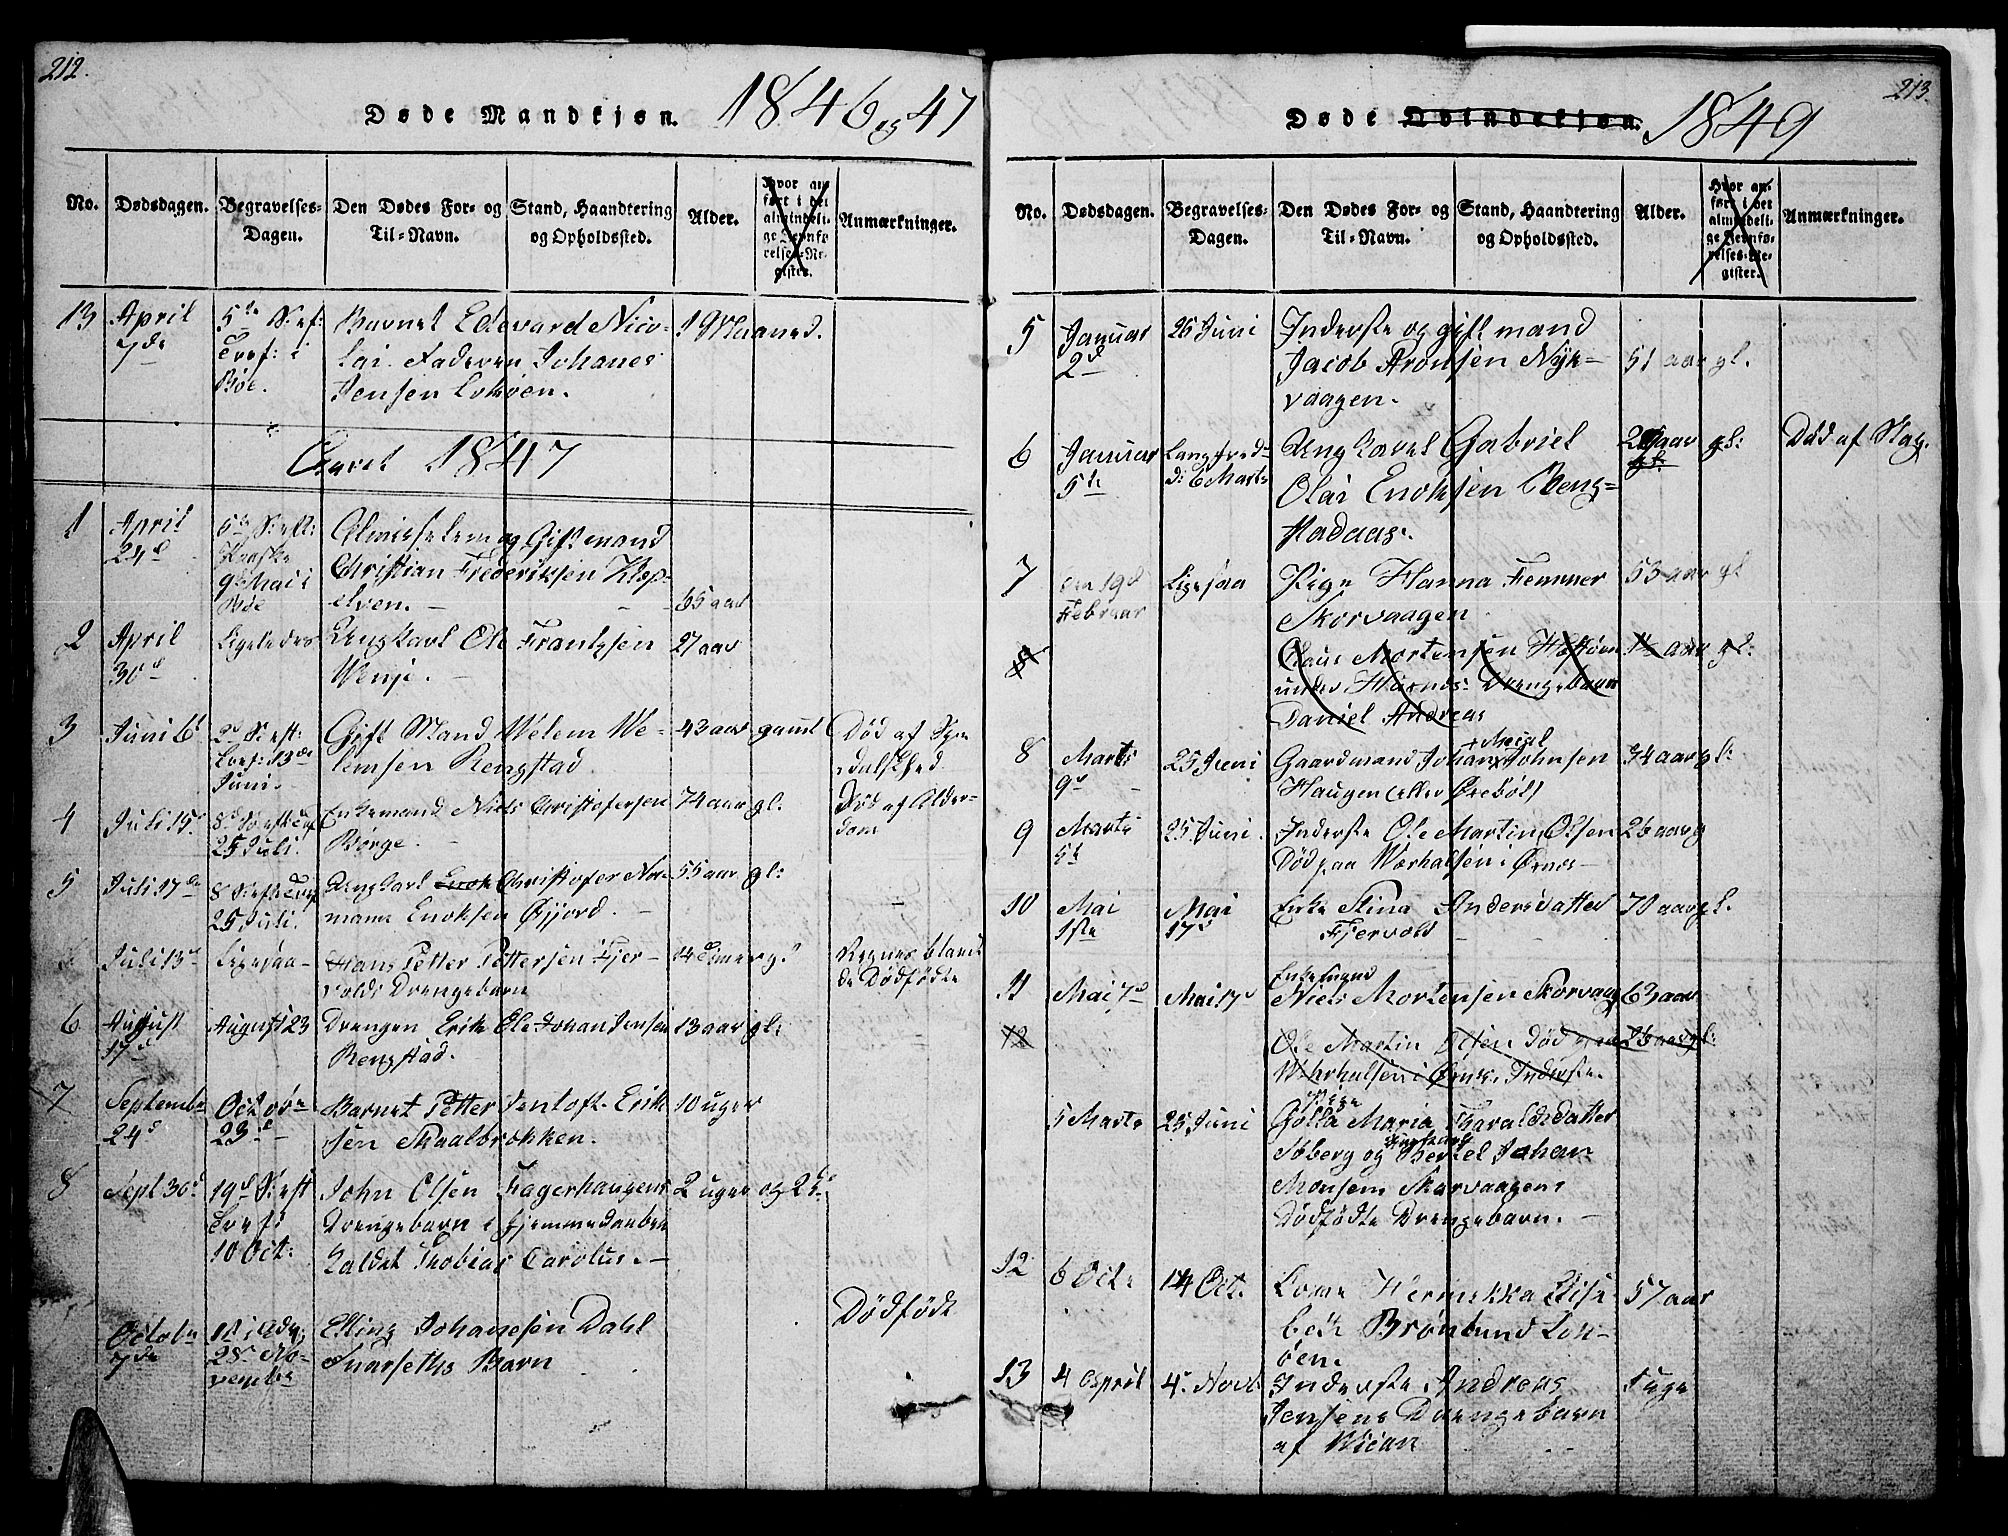 212.
Døde Mandkjøn. 1846 og 47
No. Dødsdagen. Begravelses-Dagen. Den Dødes For- og Til-Navn. Stand, Haandtering og Opholdssted. Alder. Hvor anført i det almindelige Jevnførelses-Register. Anmærkninger.
13 April 7de 5te S: ef: Tref: i Bøe. Barnet Edevard Nico-
lai. Faderen Johanes
Jensen Lokøen. 19 Maaned.
Aaret 1847
1 April 24d 9de Mai i Bøe Almisselem og Gift mand
Christian Frederiksen Klep-
elven. 55 aar
2 April 30d Ligeledes Ungkarl Ole Frantzen
Wenje. 27 aar
3 Juni 6t 13de Juni. Gift Mand Welem We-
lemsen Rengstad. 43 aar gamel Død af
4 Juli 15d 25 Juli. Enkemand Niels Christofersen
Børge. 74 aar gl. Død af Alder-
dom
5 Juli 17de 25 Juli. Ungkarl Enok Christofer Nor-
mann Enoksen Øjjord. 55 aar gl:
Juli 13d Ligesaa Hans Petter Pettersen Fjer-
volds Drengebarn 14 Timer gl. Regnes blandt
de Dødfødte
6 August 17d August 23 Drengen Erik Ole Johan Jensen
Rengstad. 13 aar gl:
7 Septembr 24d Octobr 23d Barnet Petter Jentoft Erik
sen Skaalbrækken. 10 uger
8 Sept 30d 19d S: eft Tref: 10 Oct: John Olsen Fagerhaugens
Drengebarn i hjemmedaaben
kaldet Thobias Carolus. 2 uger og 2 d.
Octobr 7de 28d No-
vembr Elling Johanesen Dahl
Snarseths Barn Dødfødt
213.
Døde Qvindekjøn. 1849
No. Dødsdagen. Begravelses-Dagen. Den Dødes For- og Til-Navn. Stand, Haandtering og Opholdssted. Alder. Hvor anført i det almindelige Jevnførelses-Register. Anmærkninger.
5 Januar 2d 25 Juni Inderste og gift mand
Jacob Aronsen Nyk-
vaagen. 51 aar gl.
6 Januar 5te Langfredd: 6 Marts Ungkarel Gabriel
Olai Enoksen Beng-
Hadaas. aar gl: Død af Slag.
7 den 19d Februar Ligesaa Pige Hanna Femmer
Skorvaagen 53 aar gl
Claus Mortensen
under Drengebarn
Daniel Andreas aar gl:
8 Marts 9d 25 Juni Gaardmand Johan Johnsen
Haugen eller Ørebøl 34 aar gl:
9 Marts 5te 25 Juni. Inderste Ole Martin Olsen
Død paa Wærhalsen i Øsnes 26 aar g
10 Mai 1ste Mai 17d Enke Stina Andersdatter
Fjervold 70 aar gl.
11 Mai 7d Mai 17d Enkemand
Niels Mortensen Skorvaag 63 aar
12 Ole Martin Olsen Død paa
Wærhalsen i Øsnes. Inderste. 26 aar gl:
5 Marts 25 Juni Pige
Golla Maria Haraldsdatter
Søberg og Ungkarl Bertel Johan
Monsen Skorvaagens
Dødfødte Drengebarn.
12 6 Octr 14 Oct. Kone Elisa-
beth Brønlund Lok-
øen. 57 aar
13 4 April 4d Novb Inderste Andreas
Jensens Drengebarn
af 1 uge